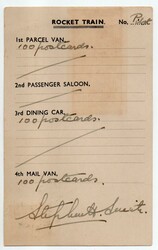 ROCKET TRAIN. No. Pilot
1st PARCEL VAN,
100 postcards.
2nd PASSENGER SALOON,
3rd DINING CAR,
100 postcards.
4th MAIL VAN,
100 postcards.
Stephen H. Smith.